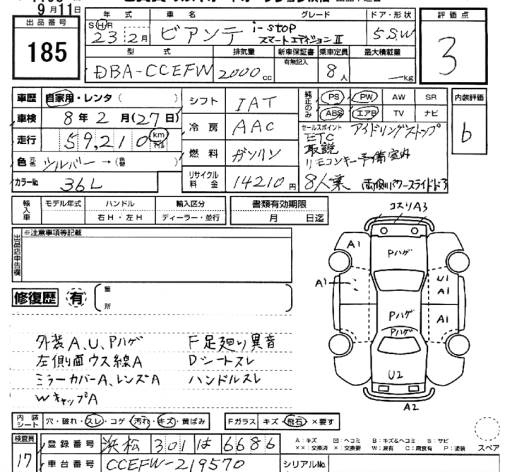 9月11日
出品番号
185
年式 車名 グレード ドア・形状
SⒽR
23.2月 ビアンテ i-stop スマートエディションⅡ 5SW
型式 排気量 新車保証書 乗車定員 最大積載量
有無記入
DBA-CCEFW 2000cc 8人 kg
評価点
3
車歴 自家用・レンタ( )
車検 8年2月(27日)
走行 59,210 km
色 シルバー→( 色)
カラー№ 36L
シフト IAT
冷房 AAC
燃料 ガソリン
リサイクル料金 14210円
純正のみ
PS PW AW SR
ABS エアB TV ナビ
内装評価
b
セールスポイント アイドリングストップ
ETC
取説
リモコンキー予備室内
8人乗 両側パワースライドドア
輸入車 モデル年式 ハンドル 輸入区分
年 右H・左H ディーラー・並行
書類有効期限
月 日迄
出品店申告欄
※注意事項等記載
修復歴 有
箇所
外装A、U、Pハゲ F足廻り異音
左側面ウス線A Dシートスレ
ミラーカバーA、レンズA ハンドルスレ
WキャップA
コスリA3
A1
Pハゲ
A1
U1
A1
A1
Pハゲ
Pハゲ
U2
A2
スペア
内装シート 穴・破れ・スレ・コゲ・汚れ・キズ・黄ばみ
Fガラス キズ・飛石・×要す
A:キズ U:ヘコミ B:キズ&ヘコミ S:サビ
××:交換済 ×:要交換 W:波 C:腐食有 P:塗装
検査員
17
登録番号 浜松 301 は 6686
車台番号 CCEFW-219570
シリアル№